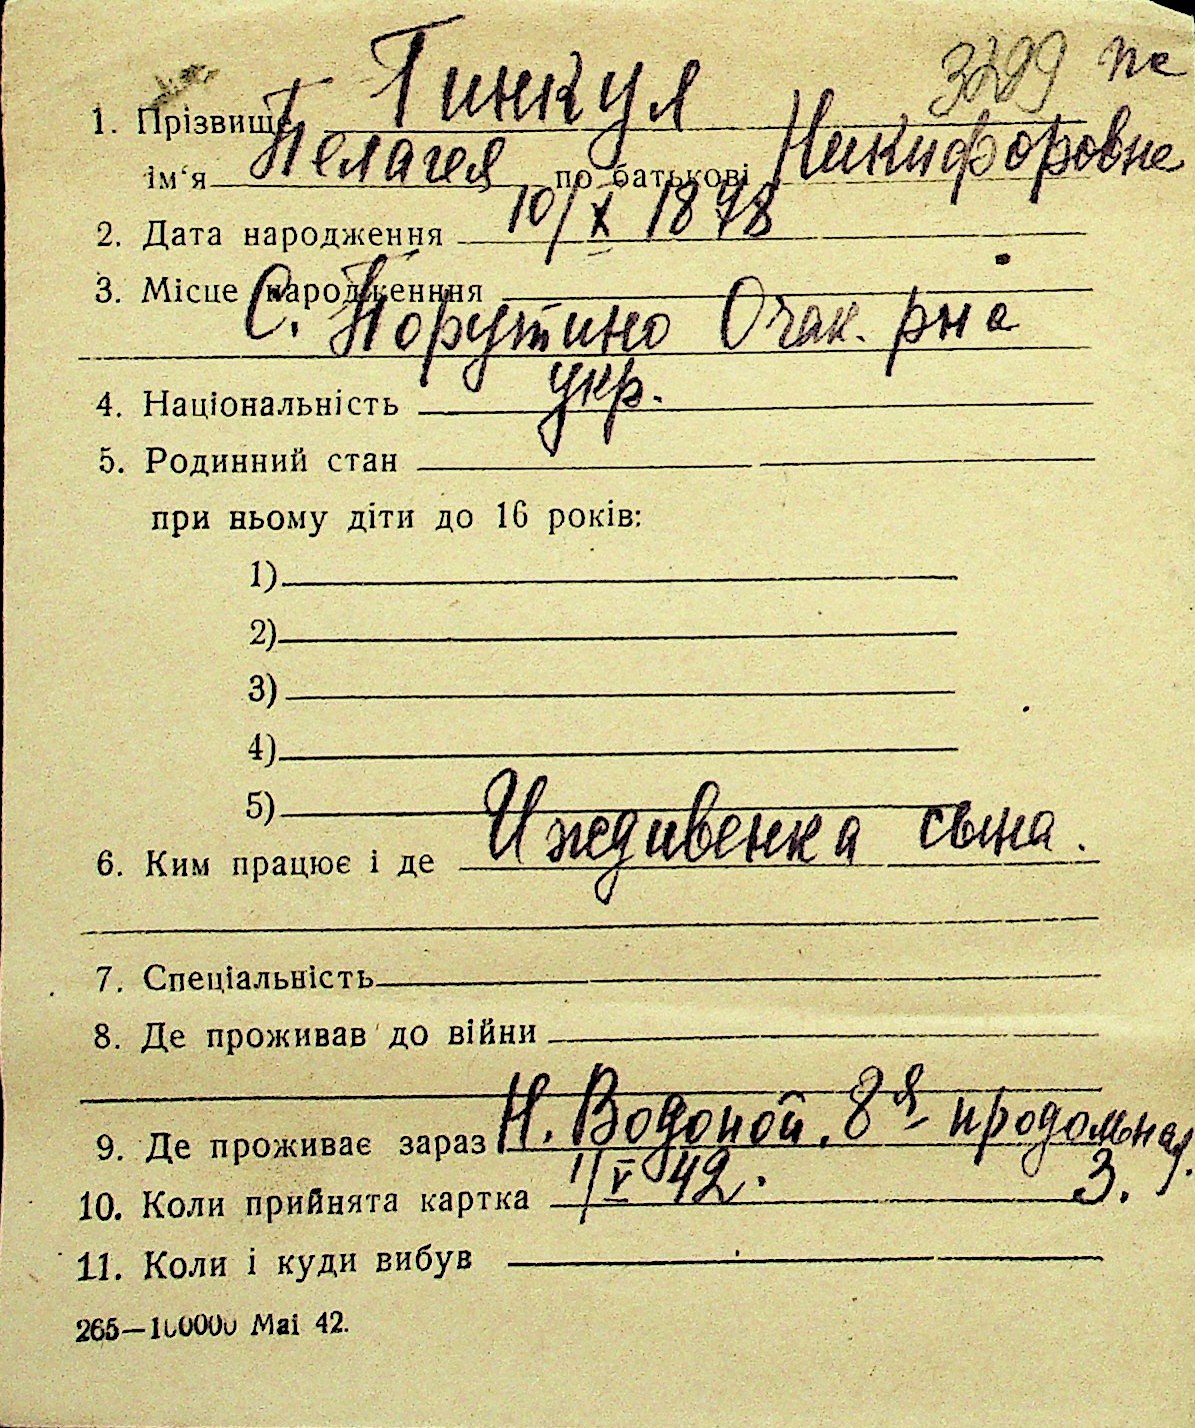 3299 пе
1. Прізвище Гинкул
ім'я Пелагея по батькові Никифоровне
2. Дата народження 10/X 1878
3. Місце народженння
С. Порутино Очак. рна
4. Національність укр.
5. Родинний стан
при ньому діти до 16 років:
1)
2)
3)
4)
5)
6. Ким працює і де Иждивенка сына.
7. Спеціальність
8. Де проживав до війни
9. Де проживає зараз Н. Водопой. 8я продольная.
10. Коли прийнята картка 1/V 42. 3.
11. Коли і куди вибув
265—100000 Mai 42.